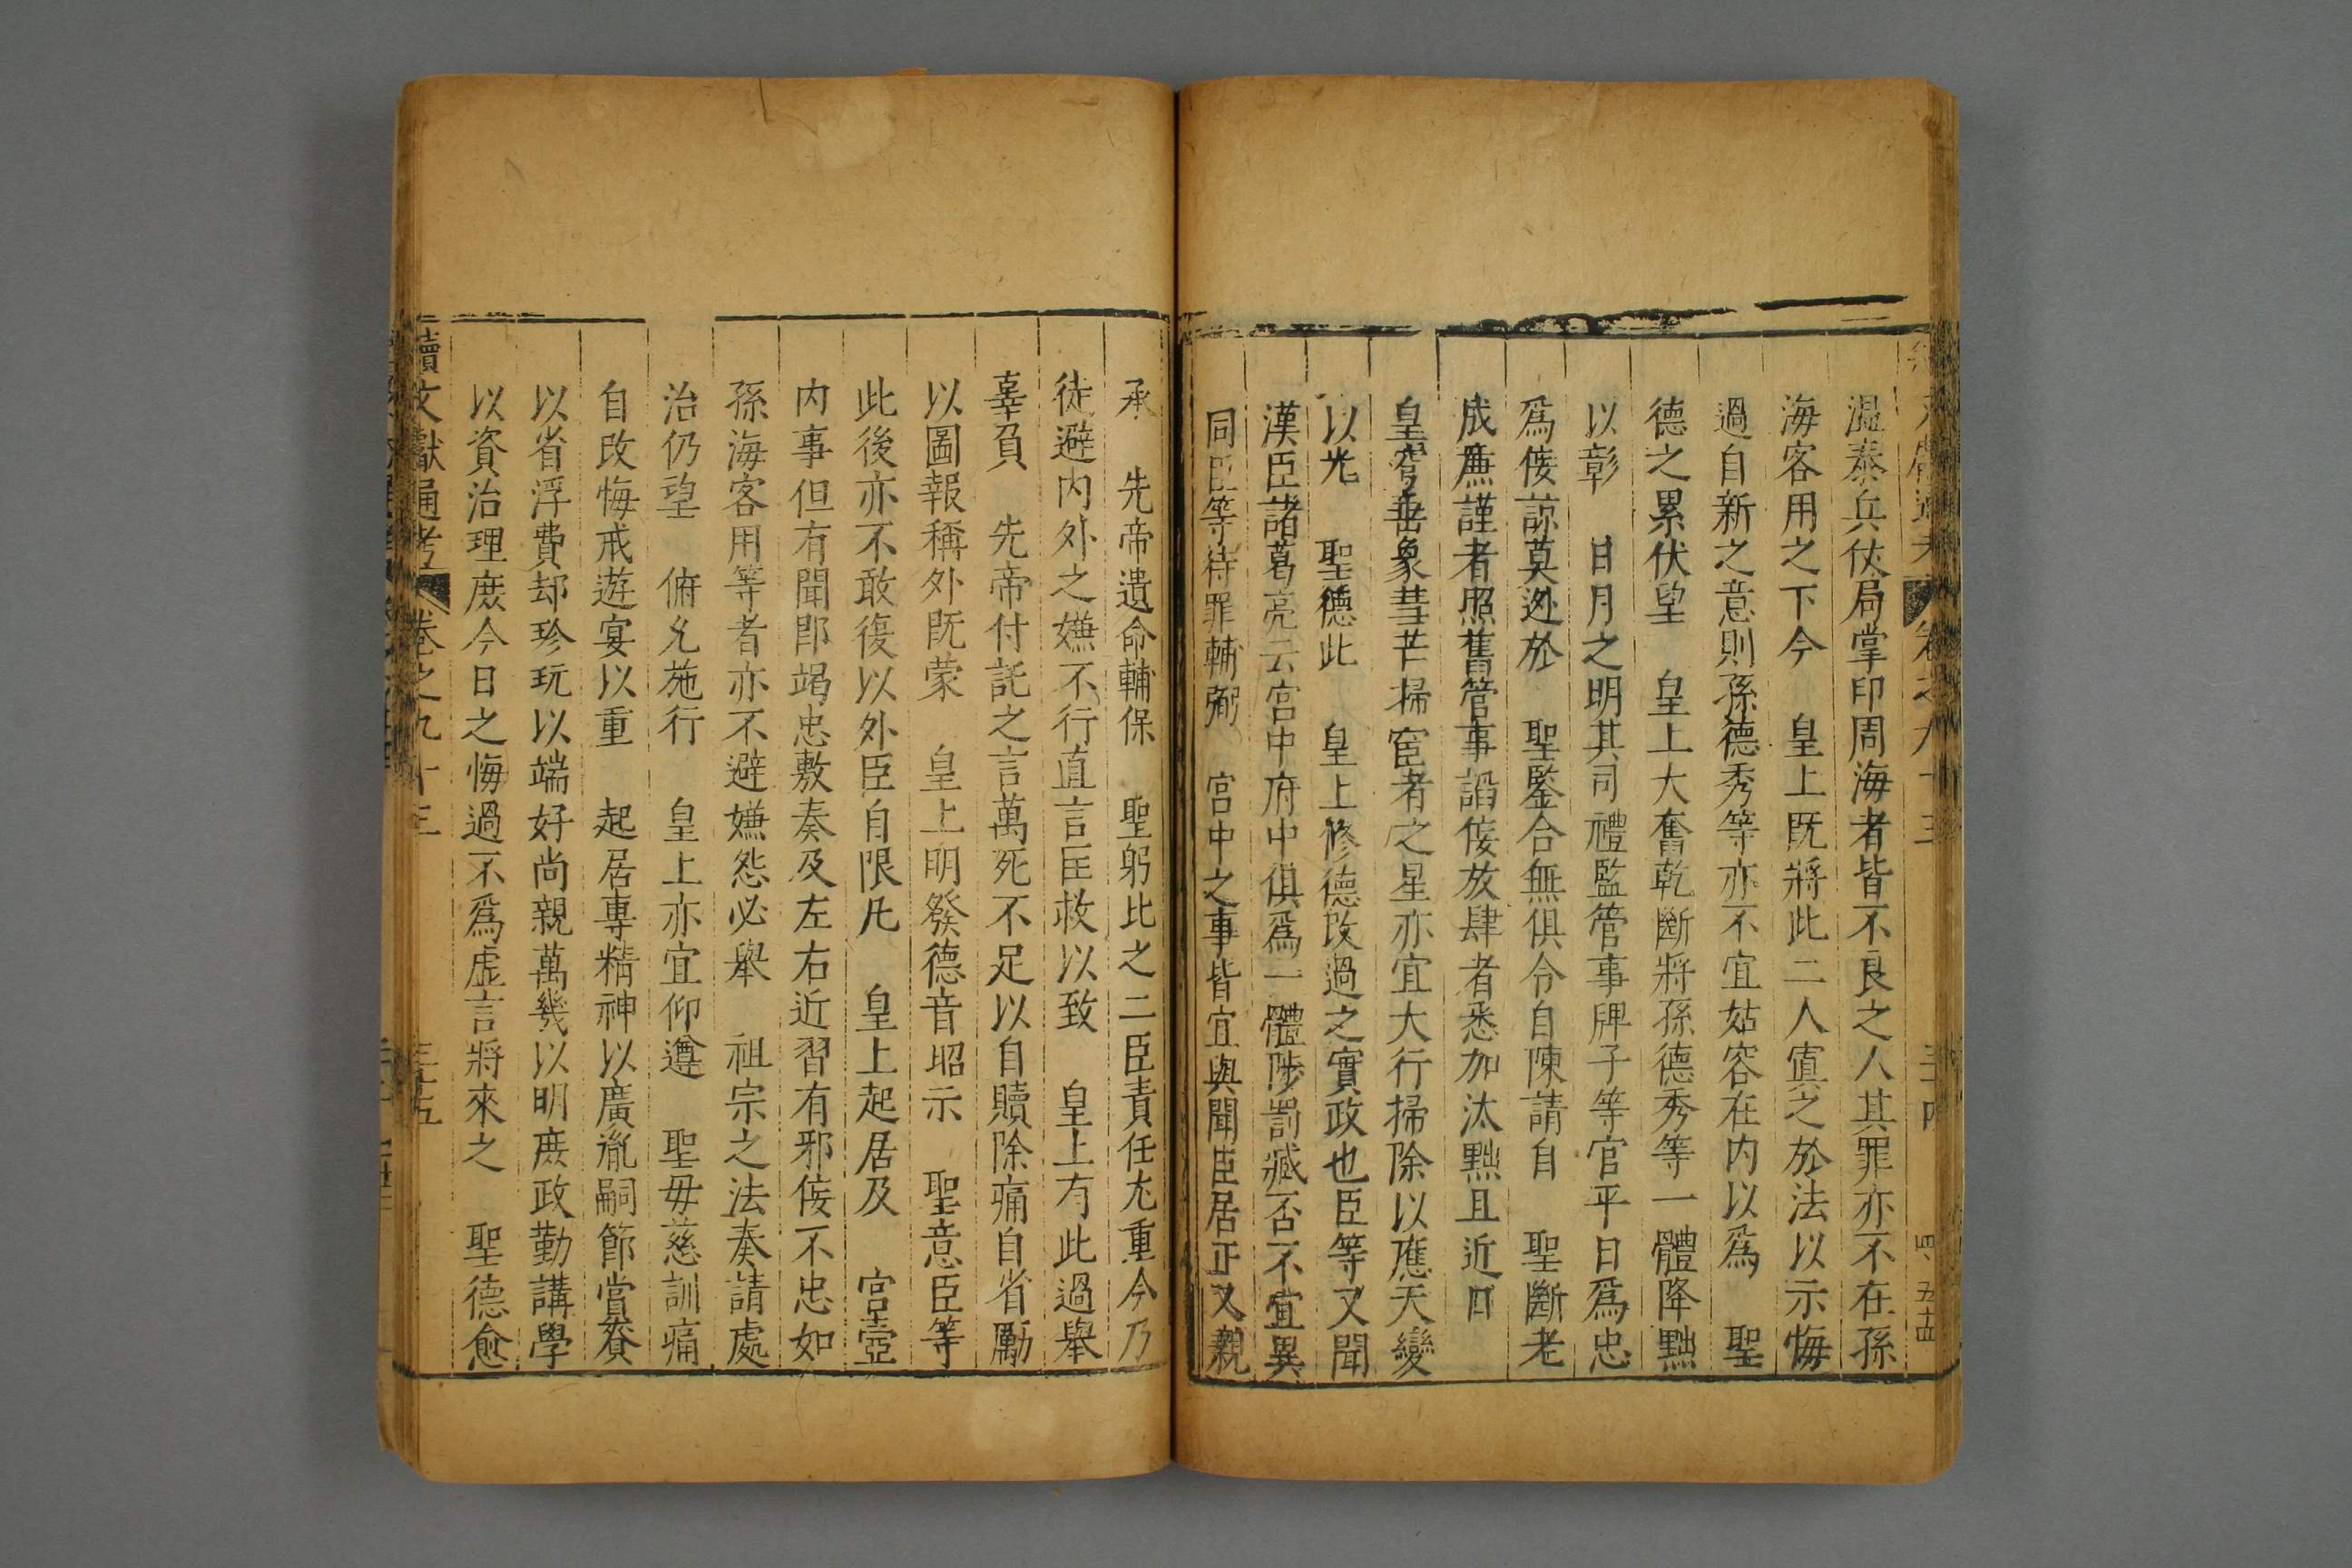 溫泰兵仗局掌印周海者皆不良之人其罪亦不在孫
海客用之下今　皇上既將此二人寘之於法以示悔
過自新之意則孫德秀等亦不宜姑容在内以爲　聖
德之累伏望　皇上大奮乾斷將孫德秀等一體降黜
以彰　日月之明其司禮監管事牌子等官平日爲忠
爲佞諒莫逃於　聖鑒合無俱令自陳請自　聖斷老
成廉謹者照舊管事謟佞放肆者悉加汰黜且近日
皇穹垂象彗芒掃宦者之星亦宜大行掃除以應天變
以光　聖德此　皇上修德改過之實政也臣等又聞
漢臣諸葛亮云宮中府中俱爲一體陟罰臧否不宜異
同臣等待罪輔弼　宮中之事皆宜與聞臣居正又親
承　先帝遺命輔保　聖躬比之二臣責任尤重今乃
徒避内外之嫌不行直言匡救以致　皇上有此過舉
辜負　先帝付託之言萬死不足以自贖除痛自省勵
以圖報稱外既蒙　皇上明發德音昭示　聖意臣等
此後亦不敢復以外臣自限凡　皇上起居及　宮壼
内事但有聞即竭忠敷奏及左右近習有邪佞不忠如
孫海客用等者亦不避嫌怨必舉　祖宗之法奏請處
治仍望　俯允施行　皇上亦宜仰遵　聖母慈訓痛
自改悔戒遊宴以重　起居專精神以廣胤嗣節賞賚
以省浮費却珍玩以端好尚親萬幾以明庶政勤講學
以資治理庶今日之悔過不爲虛言將來之　聖德愈
續文獻通考　卷之九十三　三十五